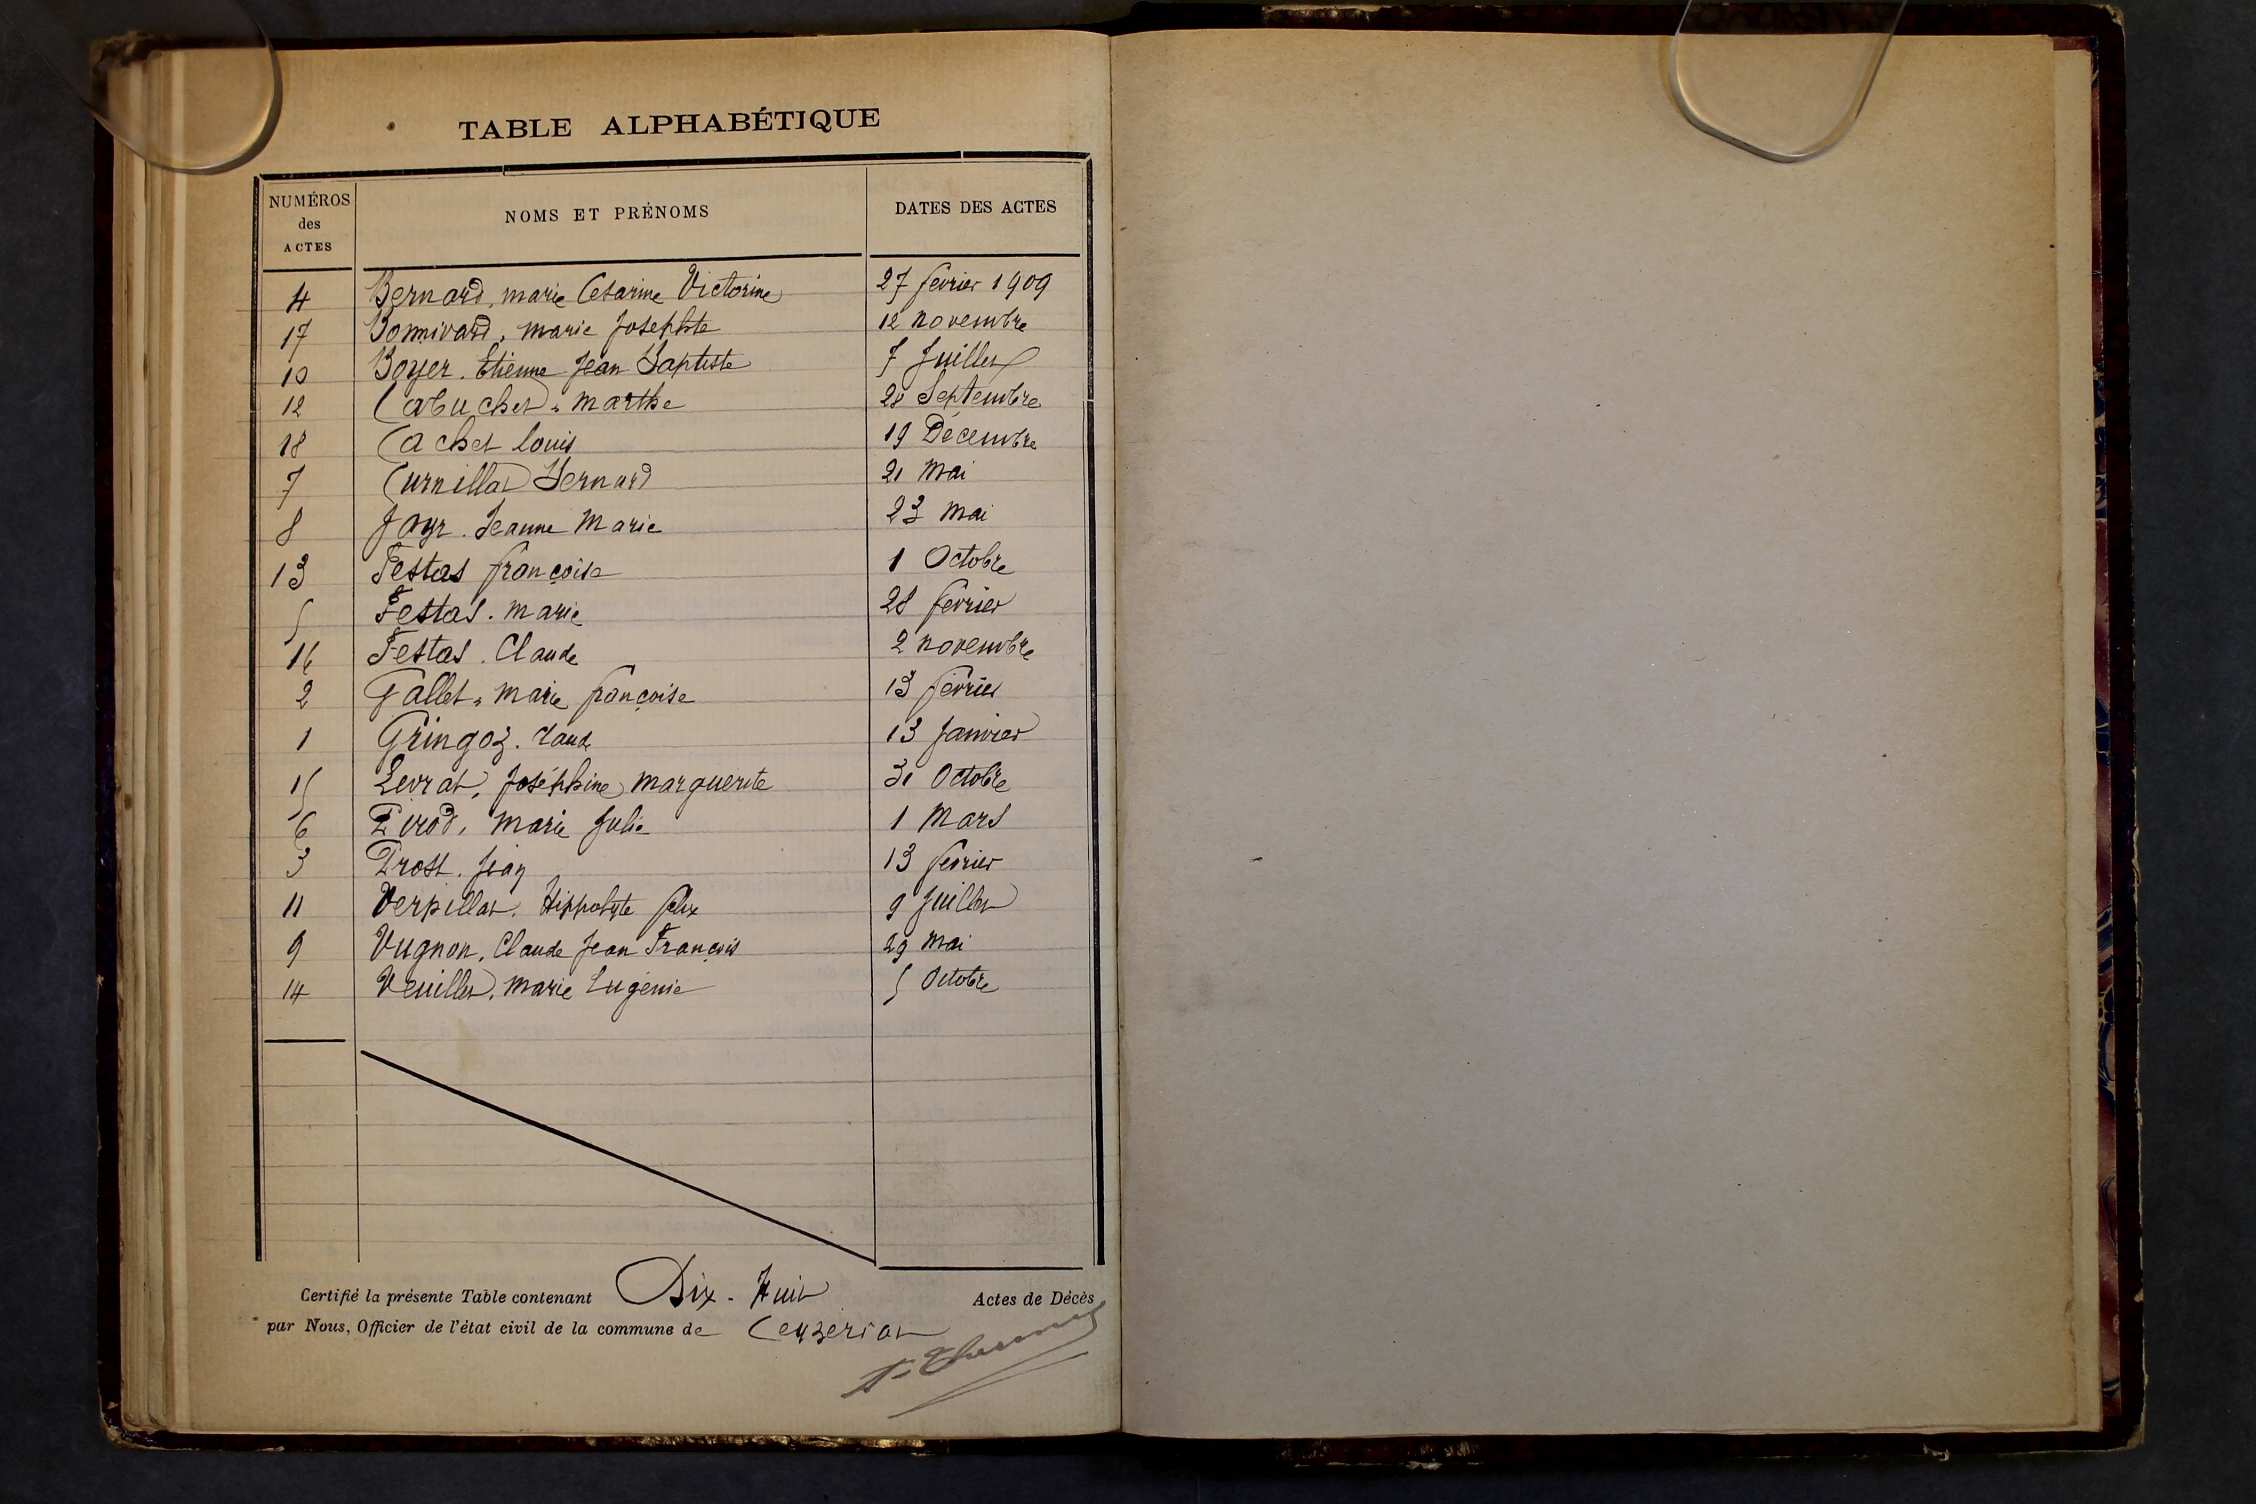 TABLE ALPHABÉTIQUE
NUMÉROS des ACTES NOMS ET PRÉNOMS DATES DES ACTES
4 Bernard, marie Cesarine Victorine 27 février 1909
17 Bonnivard, marie Josephte 12 novembre
10 Boyer. Etienne Jean Baptiste 7 Juillet
12 Cabuchet, marthe 28 Septembre
18 Cachet louis 19 Décembre
7 Curnillat Bernard 21 mai
8 Fayr. Jeanne Marie 23 mai
13 Festas françoise 1 Octobre
5 Festas. marie 28 février
16 Festas. Claude 2 novembre
2 Gallet, marie françoise 13 février
1 Gringoz. Claude 13 Janvier
15 Levrat, Joséphine marguerite 31 Octobre
6 Pirod, marie Julie 1 mars
3 Prost. Jean 13 février
11 Verpillat. Hippolyte félix 9 Juillet
9 Vugnon, Claude Jean François 29 mai
14 Veuillet, marie Eugénie 5 Octobre
Certifié la présente Table contenant Dix-Huit Actes de Décès
par Nous, Officier de l'état civil de la commune de Ceyzeriat